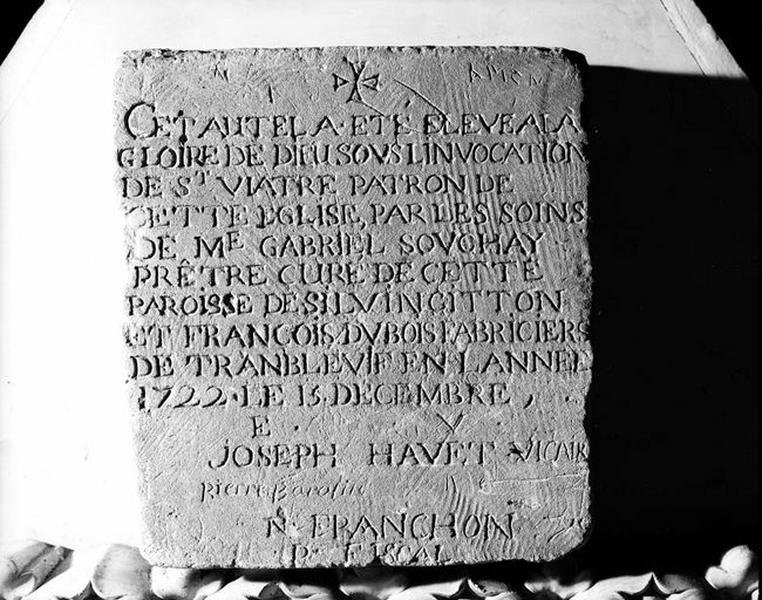 AMEN
CET AUTEL A·ETE ELEVE A LA
GLOIRE DE DIEU SOVS LINVOCATION
DE ST VIATRE PATRON DE
CETTE EGLISE, PAR LES SOINS
DE ME GABRIEL SOVCHAY
PRÊTRE CURE DE CETTE
PAROISSE DE SILVIN GITTON
ET FRANCOIS·DVBOIS FABRICIERS
DE TRANBLEVIF EN LANNEE
1722·LE 15·DECEMBRE,
E · V
JOSEPH HAVET VICAIR
pierre
N· FRANCHON
P· FISCAL